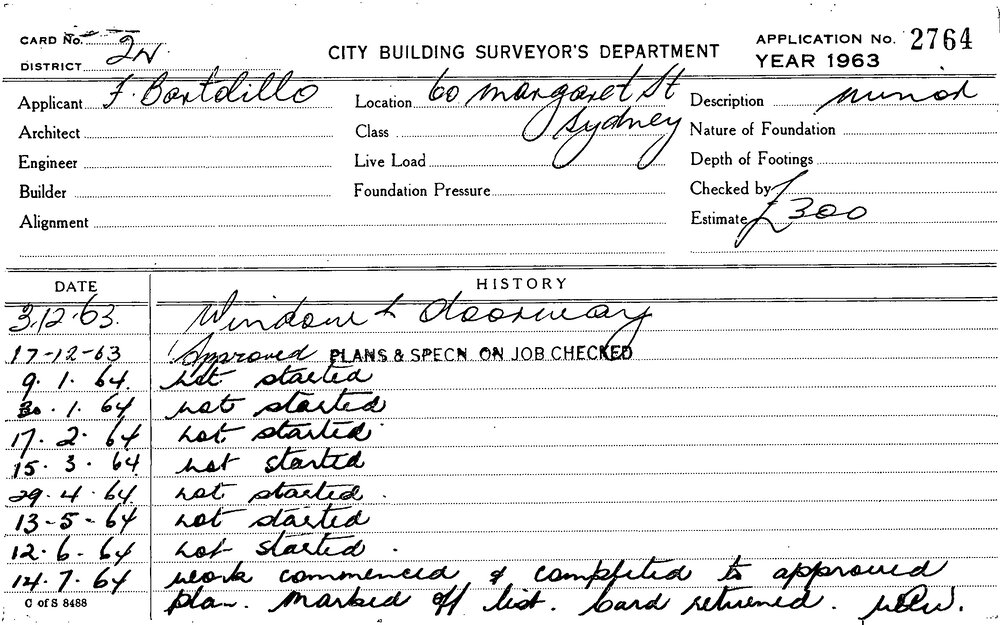 CARD No. 2W
DISTRICT
CITY BUILDING SURVEYOR'S DEPARTMENT
APPLICATION No. 2764
YEAR 1963
Applicant F. Bortolillo Location 60 Margaret St Description minor
Architect Class Sydney Nature of Foundation
Engineer Live Load Depth of Footings
Builder Foundation Pressure Checked by
Alignment Estimate £300
DATE HISTORY
3.12.63. Window & doorway
17-12-63 Approved PLANS & SPECN. ON JOB CHECKED
9. 1. 64. not started
30. 1. 64 not started
17. 2. 64 not started
15. 3. 64 not started
29. 4. 64. not started.
13-5-64 not started
12. 6. 64 not started.
14. 7. 64 work commenced & completed to approved
C of S 8488 plan. marked off list. Card returned.